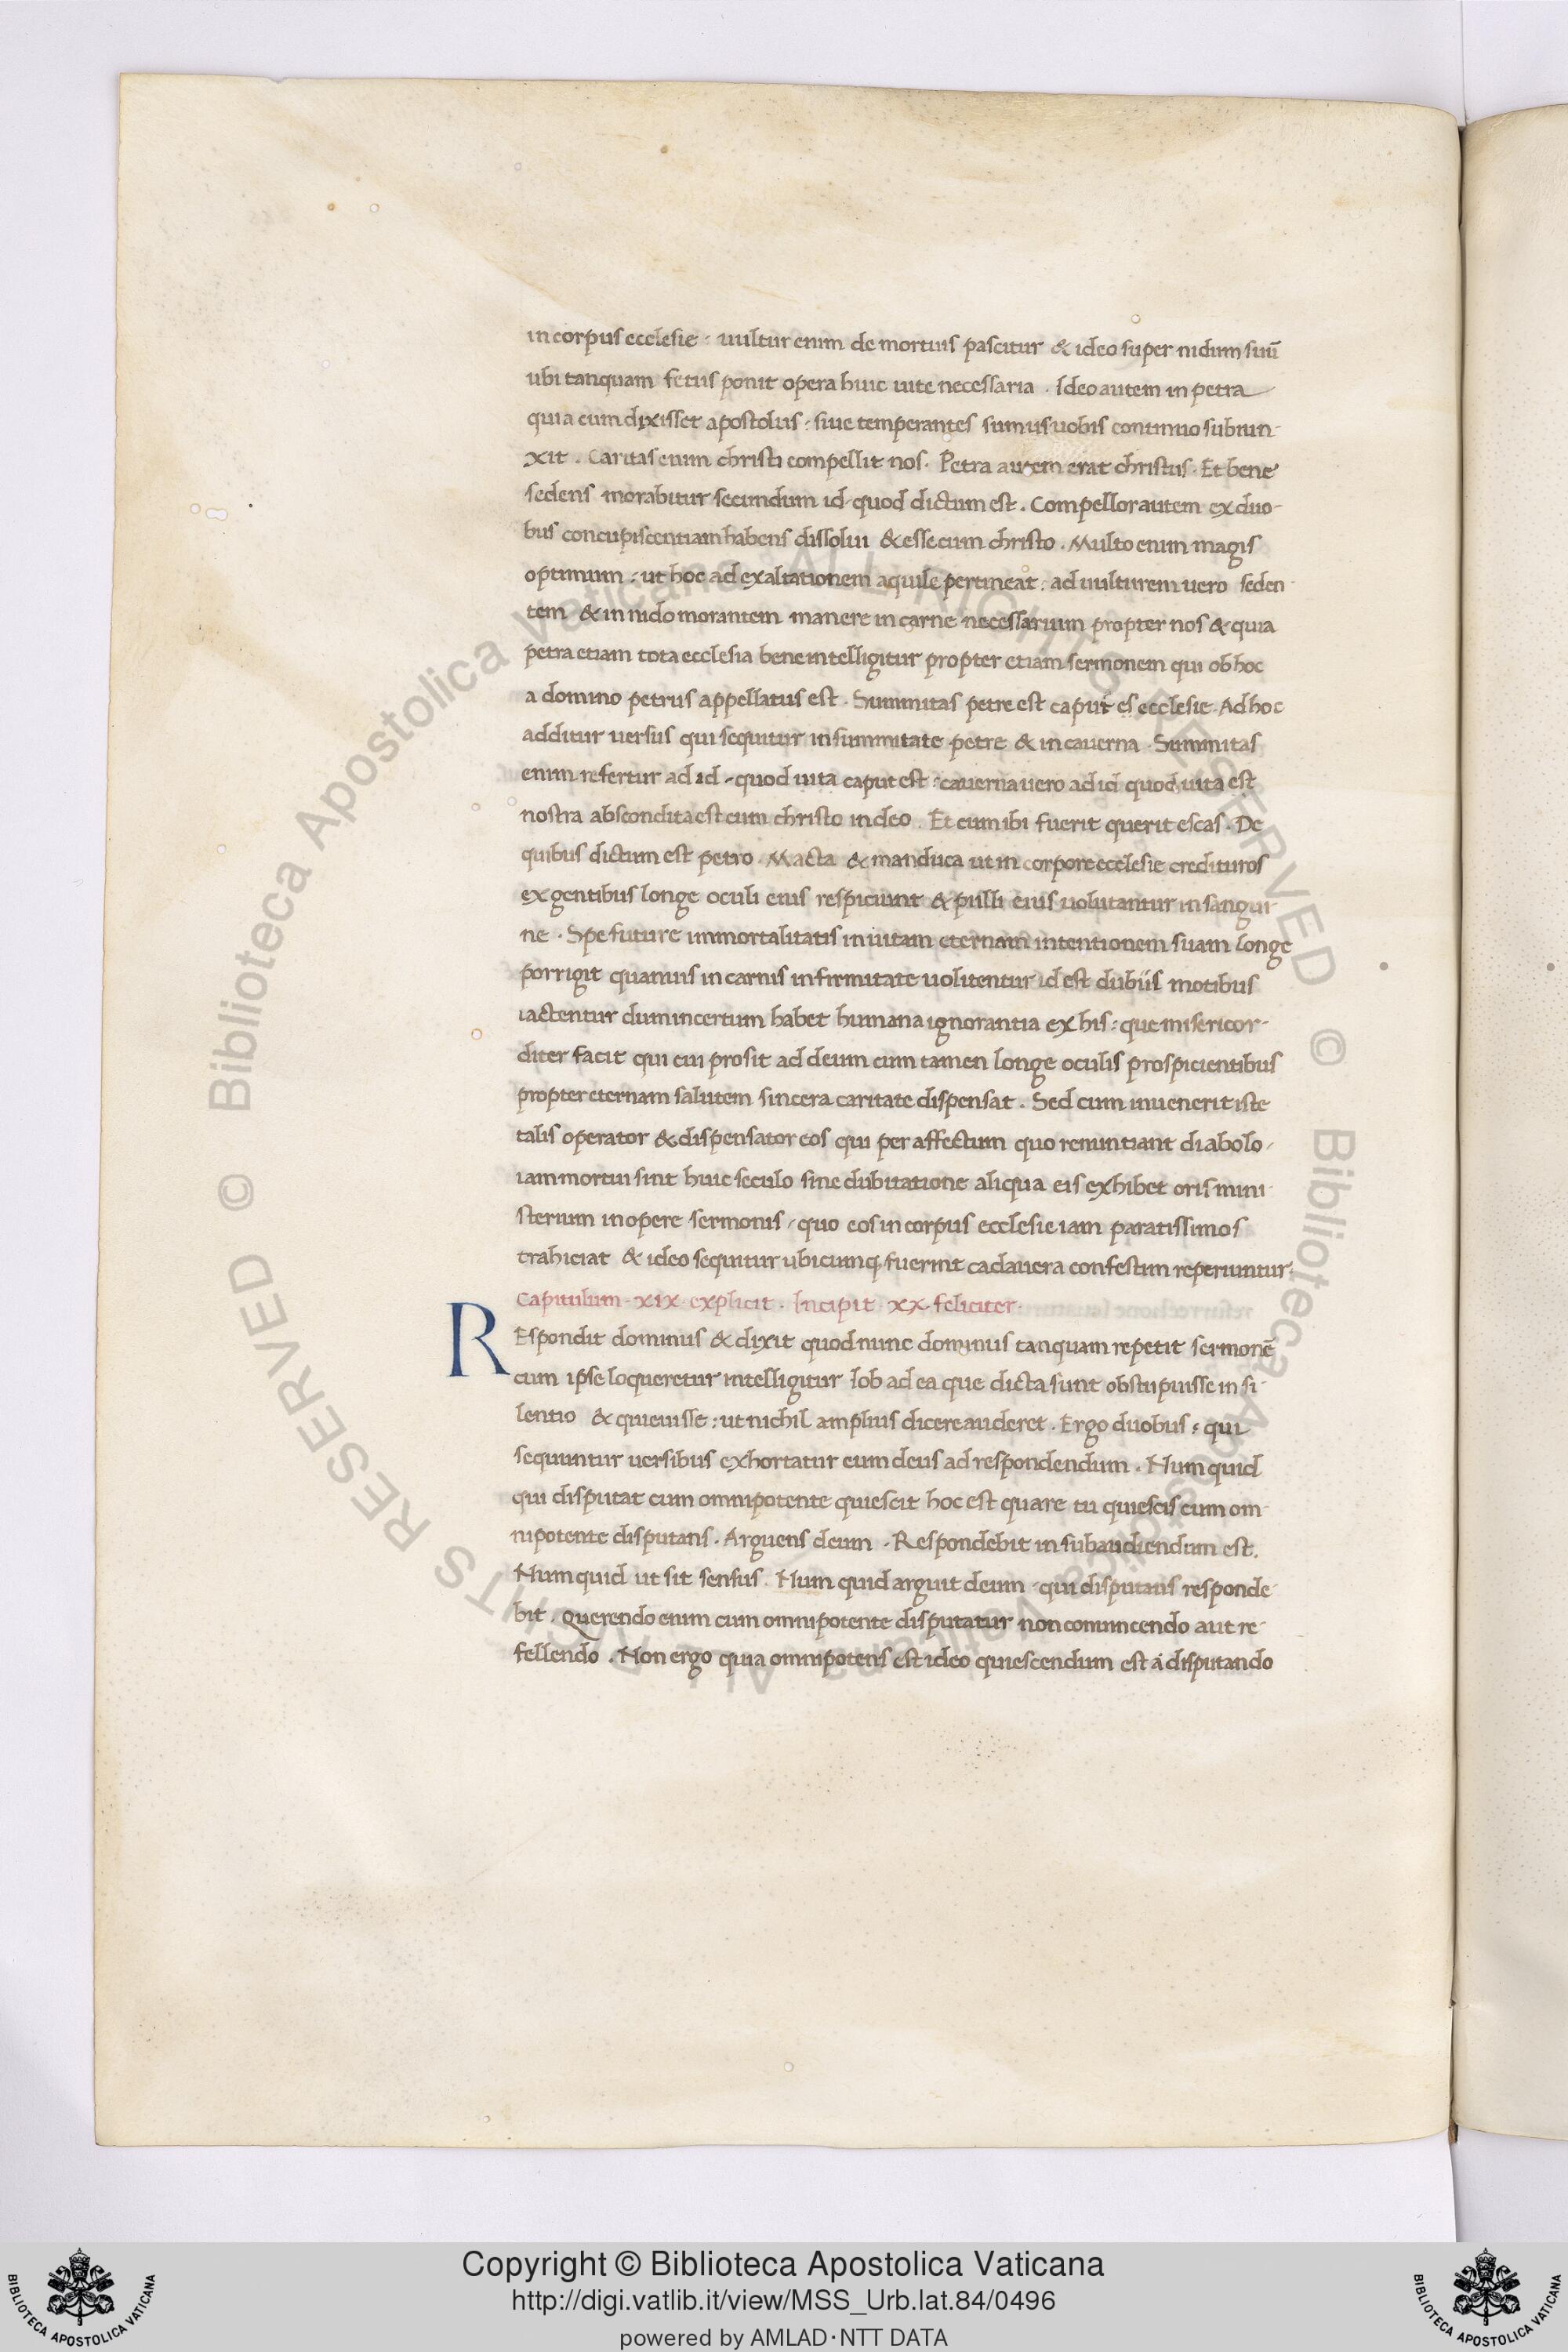 in corpus ecclesie : uultur enim de mortuis pascitur & ideo super nidum suũ
ubi tanquam fetus ponit opera huic uite necessaria . Ideo autem in petra
quia cum dixisset apostolus : siue temperantes sumus uobis continuo subiun-
xit . Caritas enim christi compellit nos . Petra autem erat christus . Et bene
sedens morabitur secundum id quod dictum est . Compellor autem ex duo-
bus concupiscentiam habens dissolui & esse cum christo . Multo enim magis
optimum : ut hoc ad exaltationem aquile pertineat : ad uulturem uero seden-
tem & in nido morantem manere in carne necessarium propter nos & quia
petra etiam tota ecclesia bene intelligitur propter etiam sermonem qui ob hoc
a domino petrus appellatus est . Summitas petre est caput es ecclesie . Ad hoc
additur uersus qui sequitur in summitate petre & in cauerna . Summitas
enim refertur ad id - quod uita caput est : cauerna uero ad id quod uita est
nostra abscondita est cum christo in deo . Et cum ibi fuerit querit escas . De
quibus dictum est petro . Macta & manduca ut in corpore ecclesie credituros
ex gentibus longe oculi eius respiciunt & pulli eius uolutantur in sangui-
ne . Spe future immortalitatis in uitam eternam intentionem suam longe
porrigit quamuis in carnis infirmitate uolitentur id est dubiis motibus
iactentur dum incertum habet humana ignorantia ex his : que misericor-
diter facit qui cui prosit ad deum cum tamen longe oculis prospicientibus
propter eternam salutem sincera caritate dispensat . Sed cum inuenerit iste
talis operator & dispensator eos qui per affectum quo renuntiant diabolo
iam mortui sint huic seculo sine dubitatione aliqua eis exhibet oris mini-
sterium in opere sermonis - quo eos in corpus ecclesie iam paratissimos
trahiciat & ideo sequitur ubicunq; fuerint cadauera confestim reperiuntur .
Capitulum . xix . explicit . Incipit . xx . feliciter .
REspondit dominus & dixit quod nunc dominus tanquam repetit sermonẽ
cum ipse loqueretur intelligitur Iob ad ea que dicta sunt obstupuisse in si-
lentio & quieuisse : ut nichil amplius dicere auderet . Ergo duobus : qui
sequuntur uersibus exhortatur eum deus ad respondendum . Num quid
qui disputat cum omnipotente quiescit hoc est quare tu quiescis cum om-
nipotente disputans . Arguens deum . Respondebit in subaudiendum est .
Num quid ut sit sensus . Num quid arguit deum - qui disputans responde-
bit . Querendo enim cum omnipotente disputatur non conuincendo aut re-
fellendo . Non ergo quia omnipotens est ideo quiescendum est á disputando
© Biblioteca Apostolica Vaticana ALL RIGHTS RESERVED
© Biblioteca Apostolica Vaticana ALL RIGHTS RESERVED
Copyright © Biblioteca Apostolica Vaticana
http://digi.vatlib.it/view/MSS_Urb.lat.84/0496
powered by AMLAD·NTT DATA
BIBLIOTECA APOSTOLICA VATICANA
BIBLIOTECA APOSTOLICA VATICANA